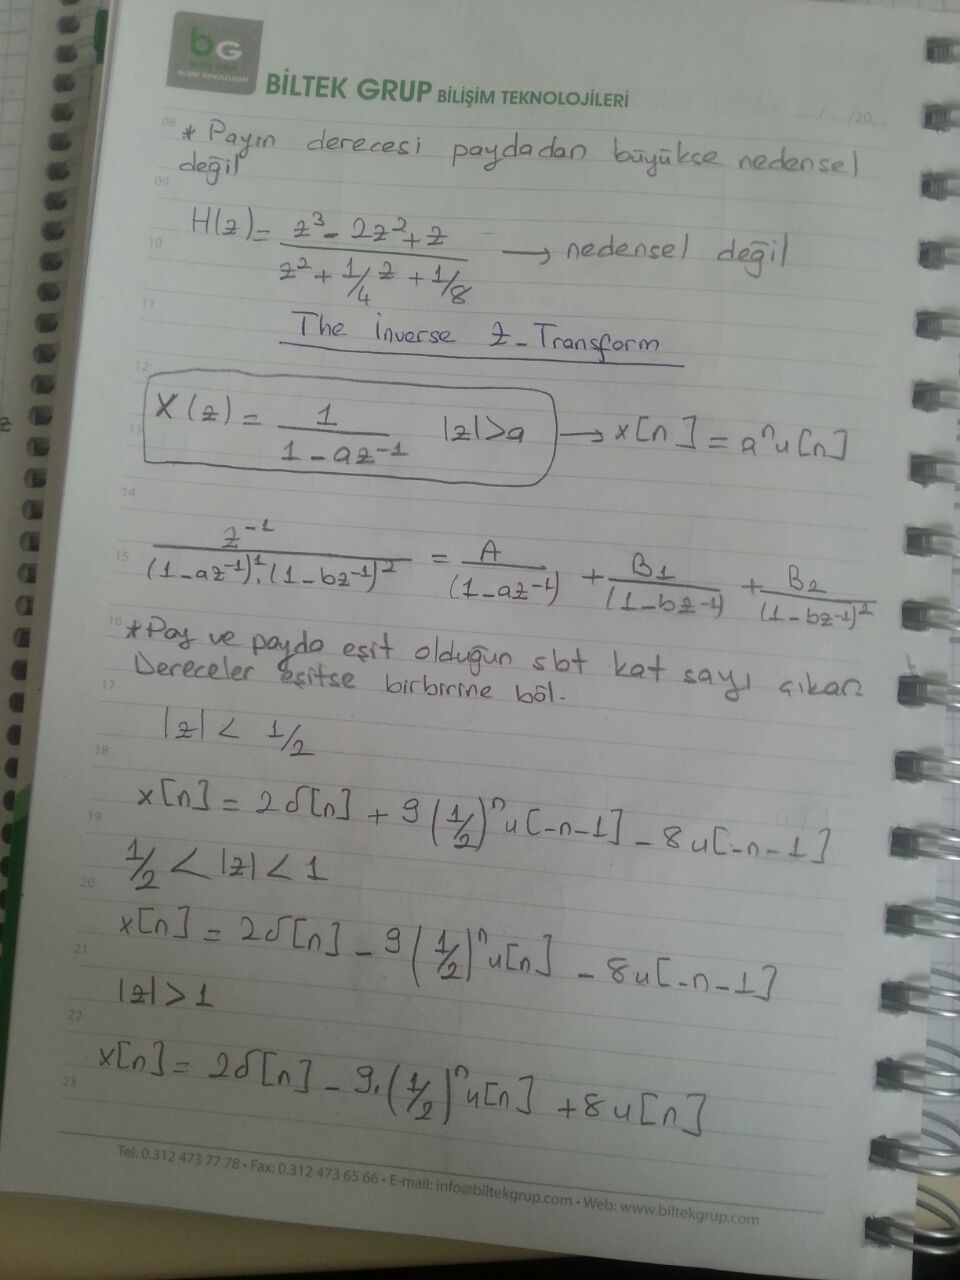 bG
BİLTEK GRUP
BİLİŞİM TEKNOLOJİLERİ
BİLTEK GRUP BİLİŞİM TEKNOLOJİLERİ
/ /20
08 * Payın derecesi paydadan büyükse nedensel
değil
09
10 H(z) = z³ - 2z² + z / z² + 1/4 z + 1/8 → nedensel değil
11
The inverse Z-Transform
12
13 X(z) = 1 / 1 - az⁻¹ |z|>a → x[n] = aⁿu[n]
14
15 z⁻¹ / (1-az⁻¹)¹.(1-bz⁻¹)² = A / (1-az⁻¹) + B₁ / (1-bz⁻¹) + B₂ / (1-bz⁻¹)²
16 * Pay ve payda eşit olduğun sbt kat sayı çıkar
17 Dereceler eşitse birbirine böl.
|z| < 1/2
18
x[n] = 2δ[n] + 9(1/2)ⁿu[-n-1] - 8u[-n-1]
19
1/2 < |z| < 1
20
x[n] = 2δ[n] - 9(1/2)ⁿu[n] - 8u[-n-1]
21
|z| > 1
22
x[n] = 2δ[n] - 9.(1/2)ⁿu[n] + 8u[n]
23
Tel: 0.312 473 77 78 • Fax: 0.312 473 65 66 • E-mail: info@biltekgrup.com • Web: www.biltekgrup.com